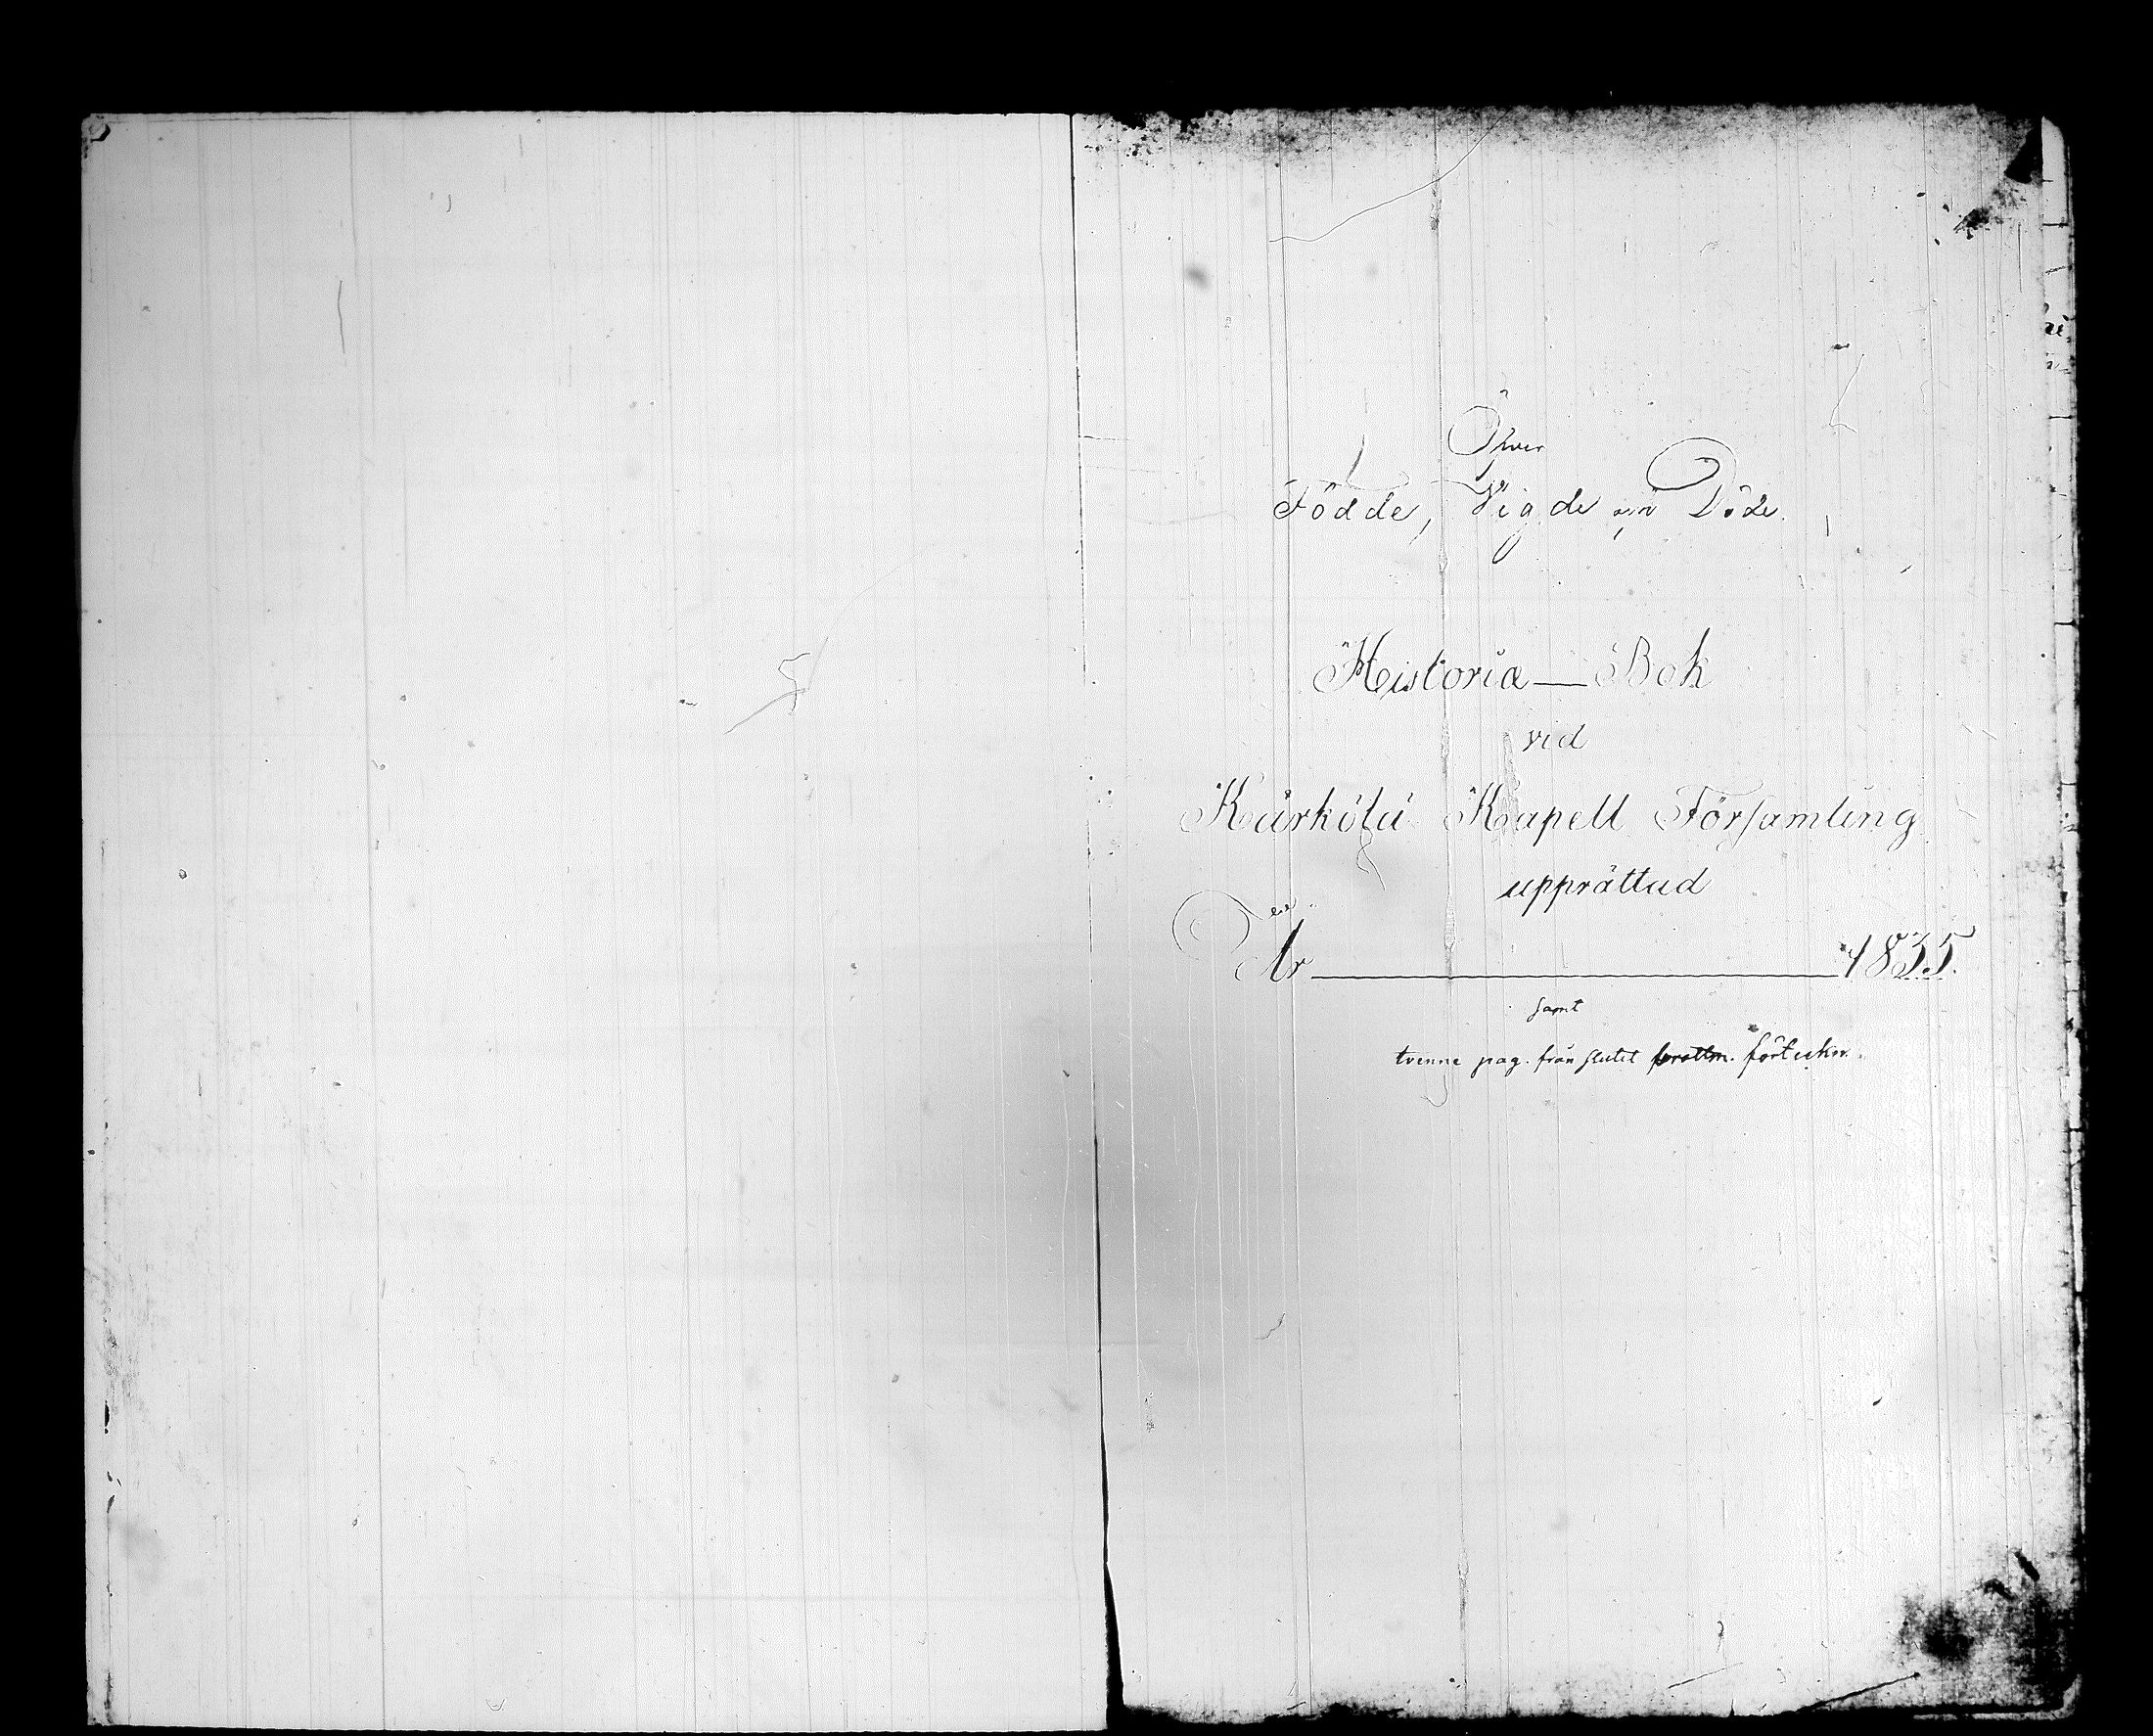 Öfver
Födde, Vigde och Döde.
Historiæ — Bok
vid
Kärkölä Kapell Församling
upprättad
År 1835.
samt
tvenne pag. från slutet förteckn.